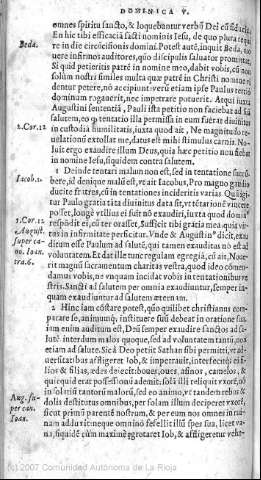 DOMINICA V.
omnes spiritu sancto, & loquebantur verbū Dei cū fiducia.
En hic tibi efficaciā sacti nominis Iesu, de quo plura
re in die circūcisionis domini. Potest autē, inquit Beda,
uere infirmos auditores, quo discipulis saluator promittat,
Si quid petieritis patrē in nomine meo, dabit vobis, cū non
solūm nostri similes multa quæ patrē in Christi no mine vi
dentur petere, nō accipiunt: verū etiam ipse Paulus tertiò
dominum rogauerit, nec impetrare potuerit. Atqui iuxta
Augustini sententiā, Pauli ista petitio non faciebat ad sui
salutem, eo quod tentatio illa permissa in eum fuerat diuinitus
in custodiā humilitatis, iuxta quod ait, Ne magnitudo re
uelationū extollat me, datus est mihi stimulus carnis. No
luit ergo exaudire illum Deus, quia hæc petitio non fiebat
in nomine Iesu, siquidem contra salutem.
1 Deinde tentari malum non est, sed in tentatione succū
bere, id denique malū est, vt ait Iacobus, Pro magno gaudio
ducite fratres, cū in tentationes incideritis varias. Quā igi
tur Paulo gratia tāta diuinitus data sit, vt tētari & vincere
posset, longè vtilius ei fuit nō exaudiri, iuxta quod domin'
respōdit ei, cū ter orasset, Sufficit tibi gratia mea: quia vir
tus in infirmitate perficitur. Vnde & Augustin' dicit, exau
ditum esse Paulum ad salutē, qui tamen exauditus nō est ad
voluntatem. Et dat ille tunc regulam egregiā, cū ait, Noue
rit magnū sacramentum charitas vestra, quod ideo commen
damus vobis, ne vnquam incidat vobis in tentationibus ve
stris. Sancti ad salutem per omnia exaudiuntur, semper in
quam exaudiuntur ad salutem æternam.
2 Hinc iam cōstare potest, quo quilibet christianus com
parare se, animumq́; instituere suū debeat in oratione sua.
iam enim auditum est, Deū semper exaudire sanctos ad sa-
lutē: interdum malos quoque, sed ad voluntatem tantū, non
etiam ad salutē. Sic à Deo petiit Sathan sibi permitti, vt ad-
uersitatibus affligeret Iob, & impetrauit, interfecitq́; ei fi-
lios & filias, ædes deiecit: boues, oues, asinos, camelos, &
quicquid erat possessionū ademit. solā illi reliquit vxorē, nō
in solatiū tantorū malorū, sed eo animo, vt eandem rebus &
dolis destitutus omnibus, per solam illum deiiceret vxorē,
sicut primū parentē nostrum, & per eum nos omnes in rui-
nam adduxit: neque omnino fefellit illū spes sua, licet va-
na, siquidē cum maximè egrotaret Iob, & affligeretur vehe-
Beda.
2.Cor.12
Iacob.1.
2.Cor.12
August.
super ca
no. Ioan.
tra.6.
Aug. su
per can.
Ioan.
(c) 2007 Comunidad Autónoma de La Rioja